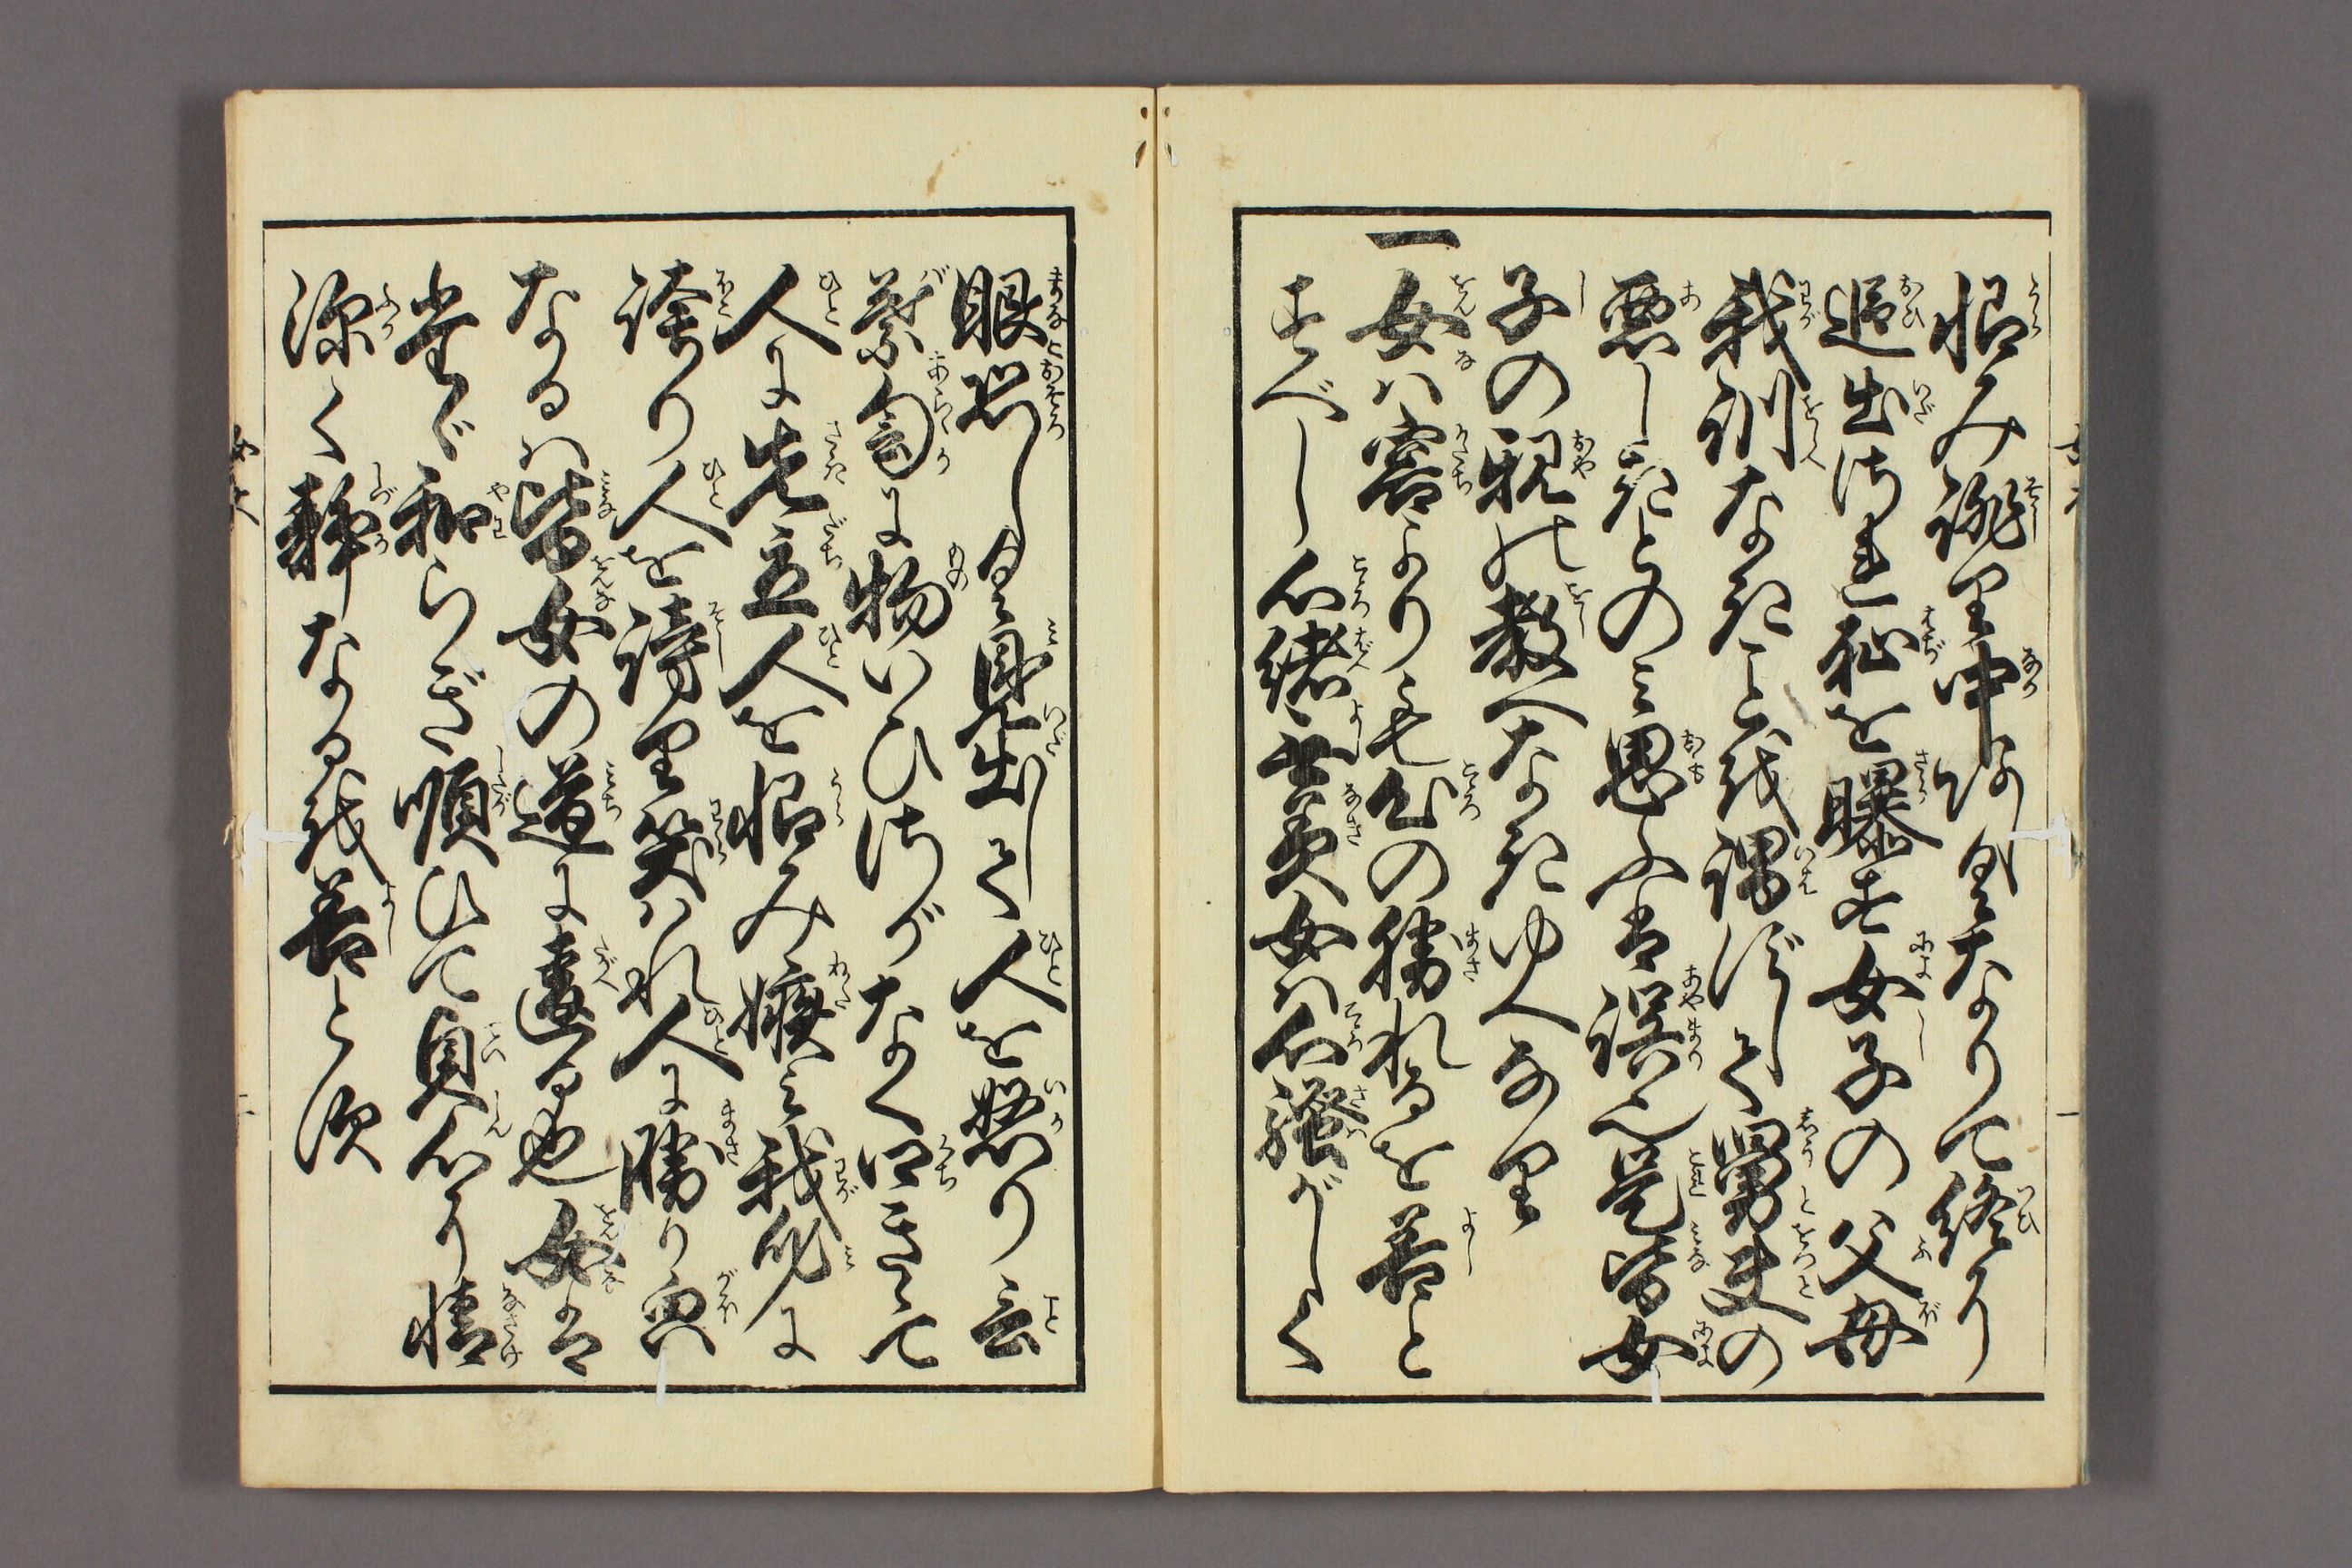 恨み誹り中あしくなりて終に
追出され恥を曝す女子の父母
我訓なきことを謂ずして舅夫の
悪しきとのみ思ふは誤なり是皆女
子の親の教へなきゆへなり
一女は容よりも心の勝れるを善と
すべし心緒無美女は心騒がしく
眼恐しく見出して人を怒り言
葉訇に物いひさがなく口きゝて
人に先立人を恨み嫉み我身に
誇り人を謗り笑はれ人に勝り皃
なるは皆女の道に違る也女は
只和らぎ順ひて貞心に情
深く静なるを善とす